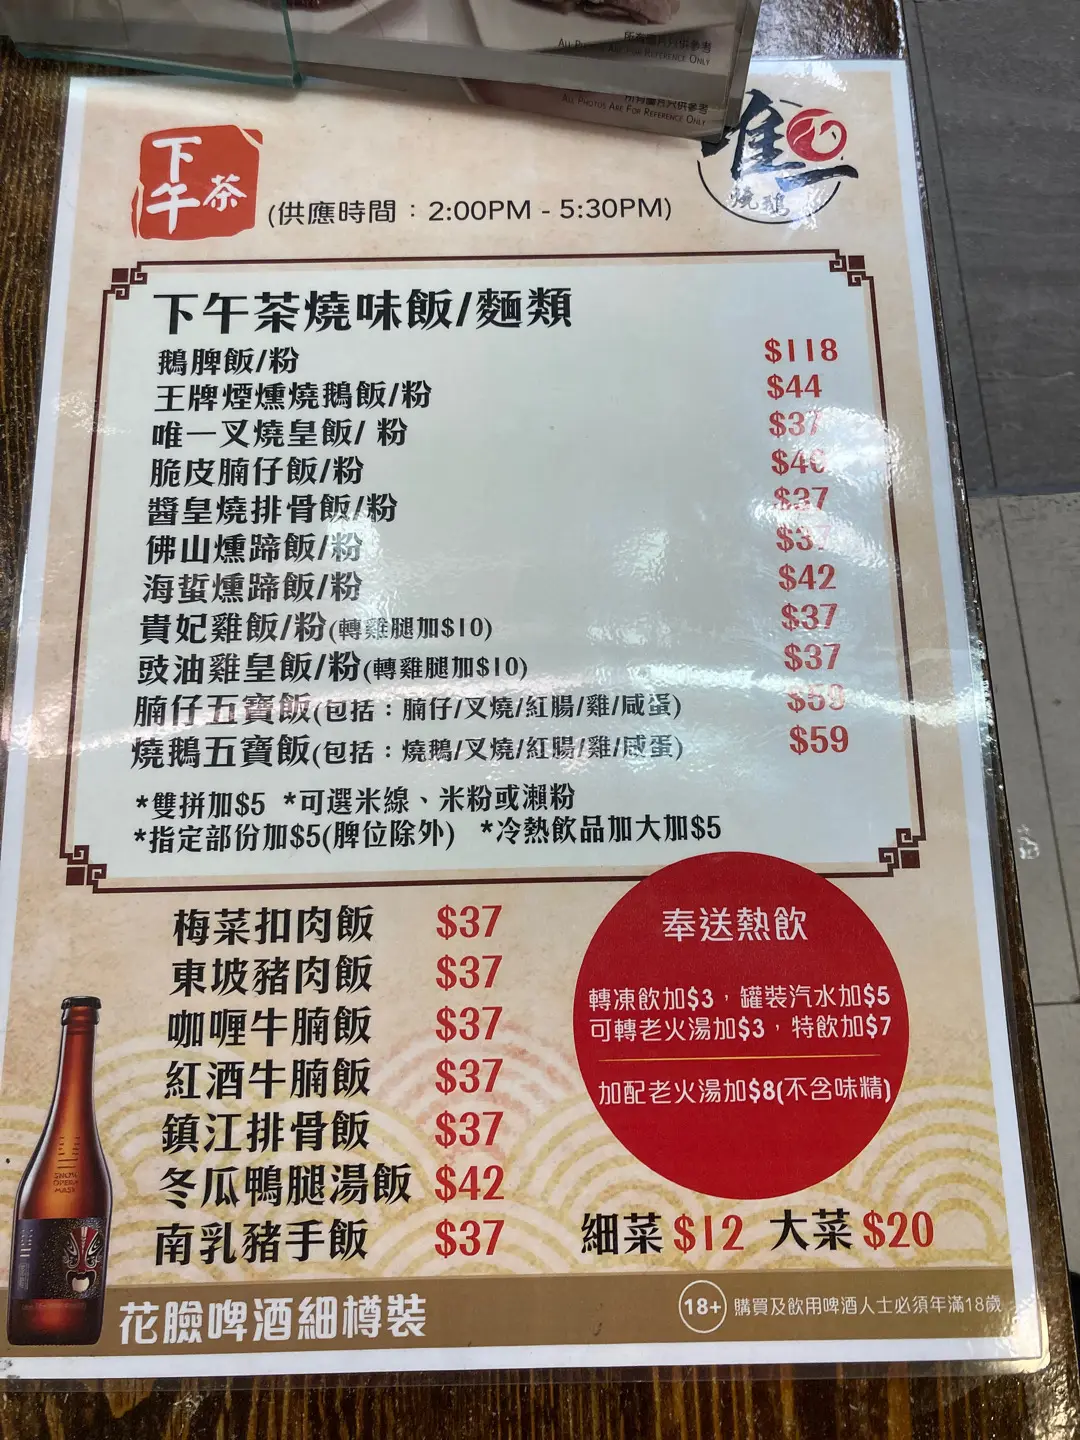 所有圖片只供參考
All Photos Are For Reference Only
所有圖片只供參考
All Photos Are For Reference Only
下午茶
(供應時間：2:00PM - 5:30PM)
唯一
燒鵝
下午茶燒味飯/麵類
鵝脾飯/粉 $118
王牌煙燻燒鵝飯/粉 $44
唯一叉燒皇飯/ 粉 $37
脆皮腩仔飯/粉
醬皇燒排骨飯/粉 $37
佛山燻蹄飯/粉
海蜇燻蹄飯/粉 $42
貴妃雞飯/粉(轉雞腿加$10) $37
豉油雞皇飯/粉(轉雞腿加$10) $37
腩仔五寶飯(包括：腩仔/叉燒/紅腸/雞/咸蛋) $59
燒鵝五寶飯(包括：燒鵝/叉燒/紅腸/雞/咸蛋) $59
*雙拼加$5 *可選米線、米粉或瀨粉
*指定部份加$5(脾位除外) *冷熱飲品加大加$5
梅菜扣肉飯 $37
東坡豬肉飯 $37
咖喱牛腩飯 $37
紅酒牛腩飯 $37
鎮江排骨飯 $37
冬瓜鴨腿湯飯 $42
南乳豬手飯 $37
奉送熱飲
轉凍飲加$3，罐裝汽水加$5
可轉老火湯加$3，特飲加$7
加配老火湯加$8(不含味精)
細菜 $12 大菜 $20
花臉啤酒細樽裝
18+ 購買及飲用啤酒人士必須年滿18歲